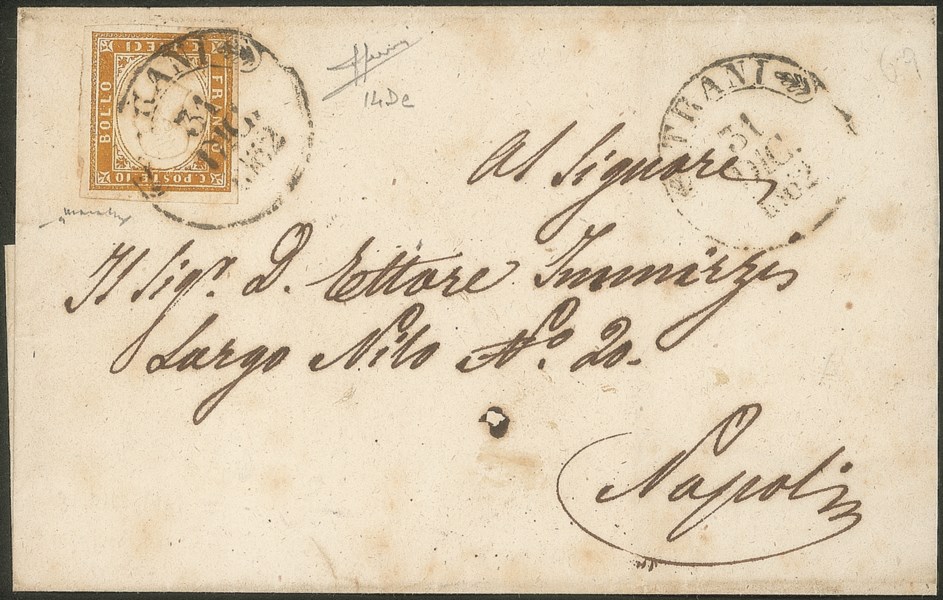 FRANCO
BOLLO
C. POSTE 10
TRANI
31
DIC.
1862
14De
TRANI
31
DIC.
1862
Al Signore
Il Sigr. D. Ettore
Largo Nilo No. 20.
Napoli